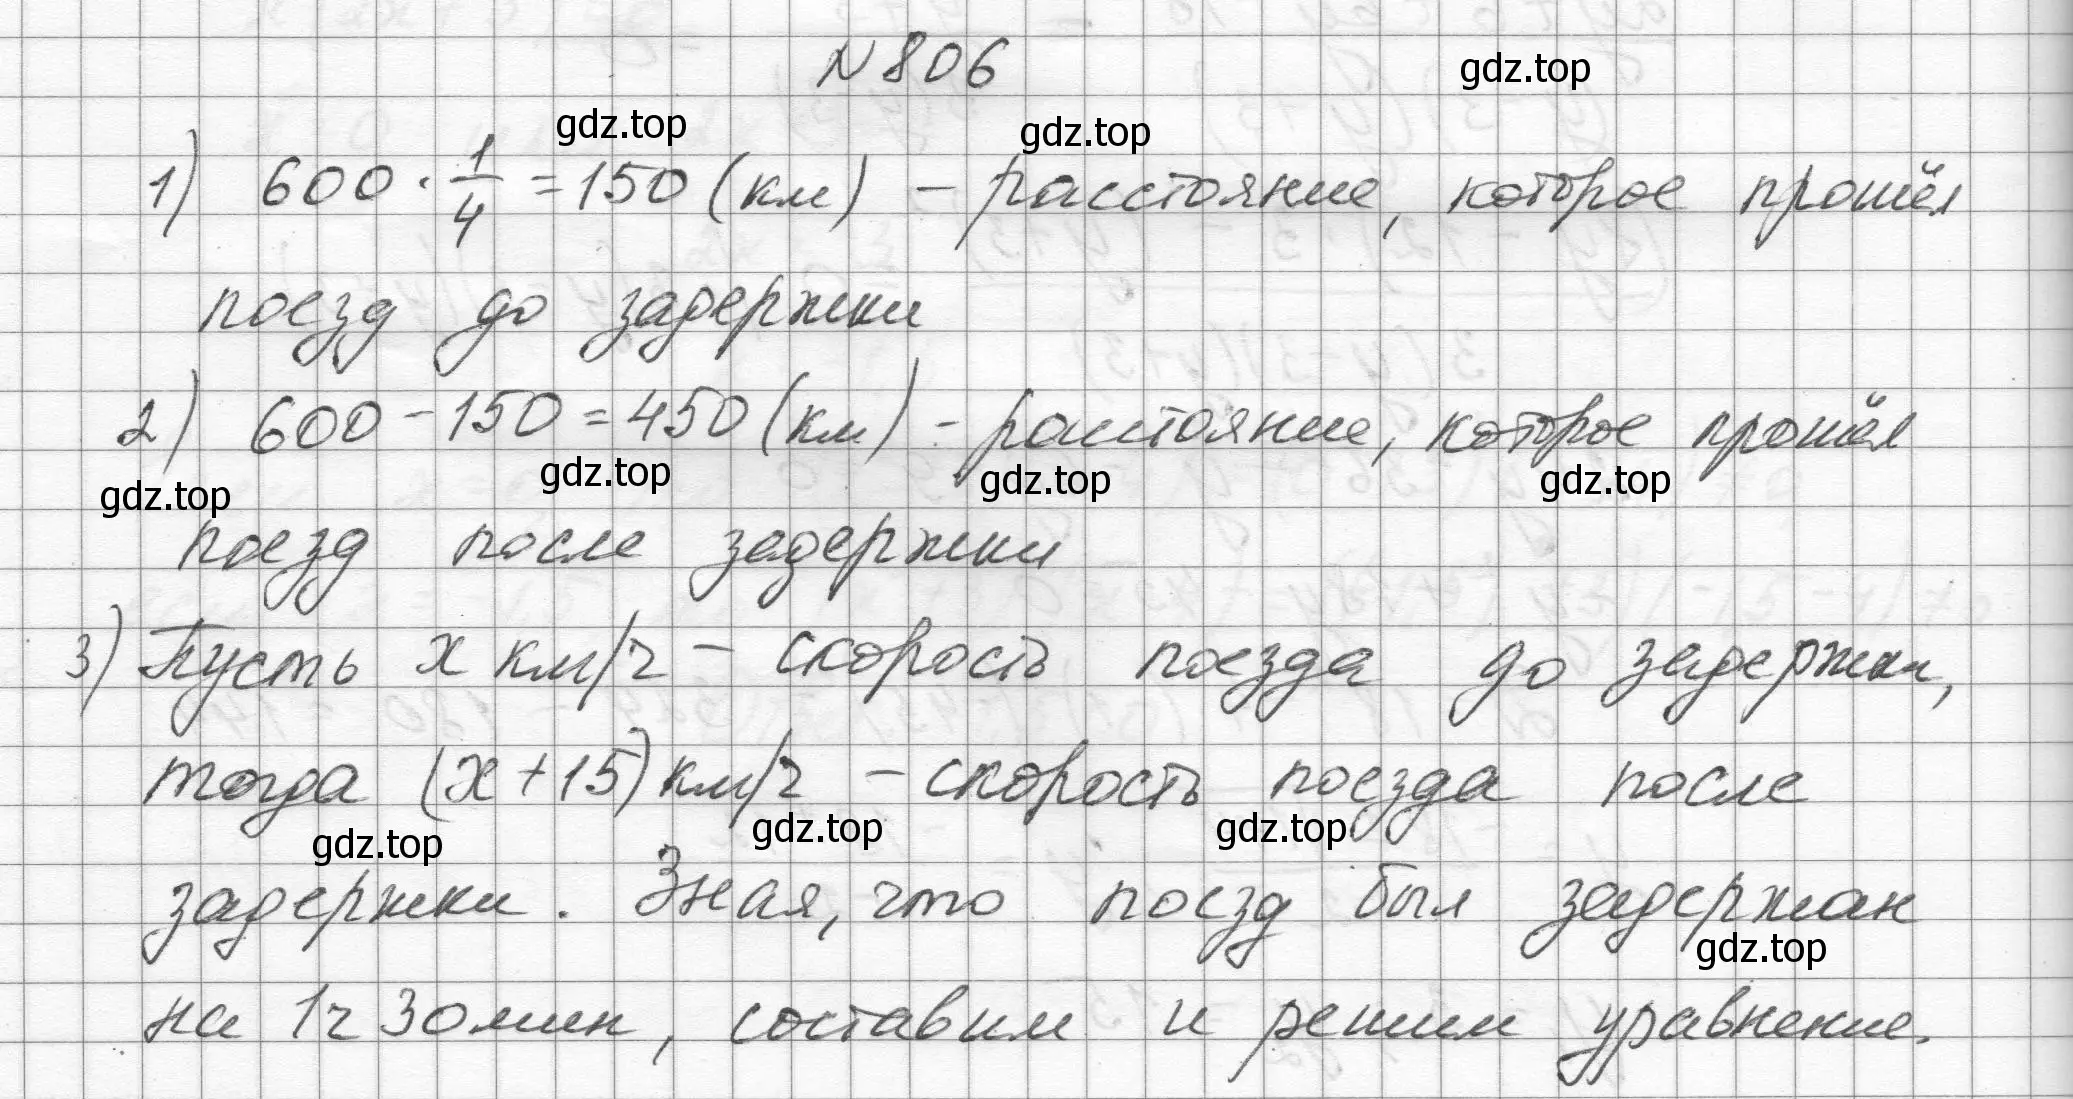 N 806
gdz.top
gdz.top gdz.top
1) 600 · 1/4 = 150 (км) – расстояние, которое прошёл
поезд до задержки
2) 600 – 150 = 450 (км) – расстояние, которое прошёл
gdz.top gdz.top gdz.top gdz.top
поезд после задержки
3) Пусть x км/ч – скорость поезда до задержки,
тогда (x + 15) км/ч – скорость поезда после
gdz.top gdz.top gdz.top
задержки. Зная, что поезд был задержан
gdz.top
на 1ч 30 мин, составим и решим уравнение.